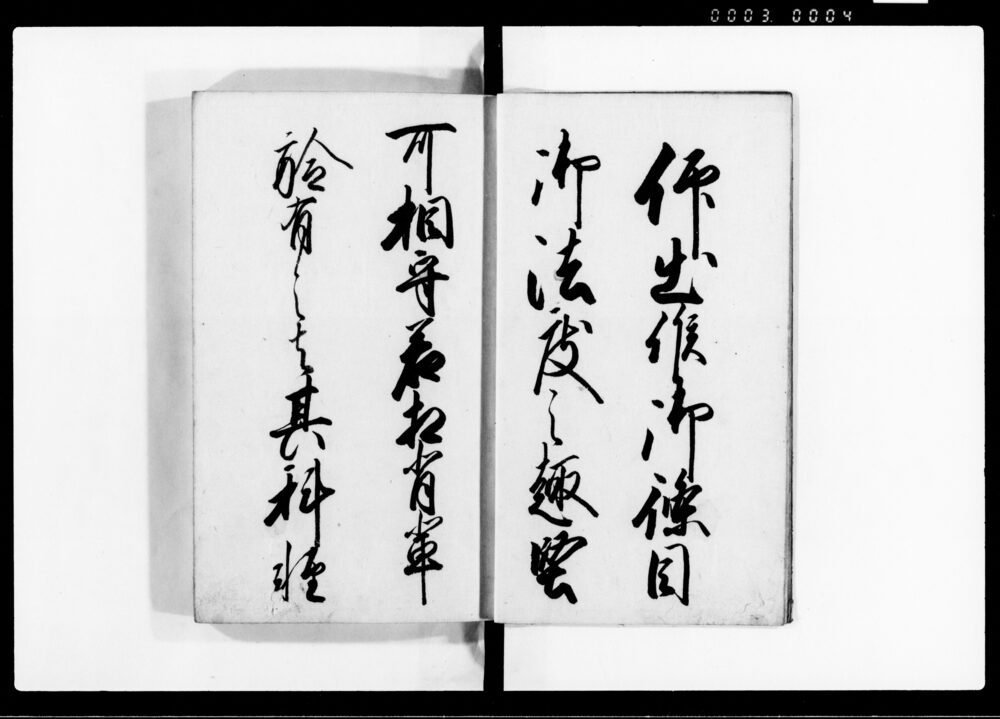 0003. 0004
仰出候御條目
御法度之趣堅
可相守若相背輩
於有之者其科軽